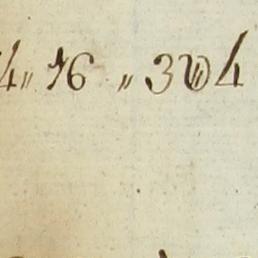 4 " 76 " 3 4